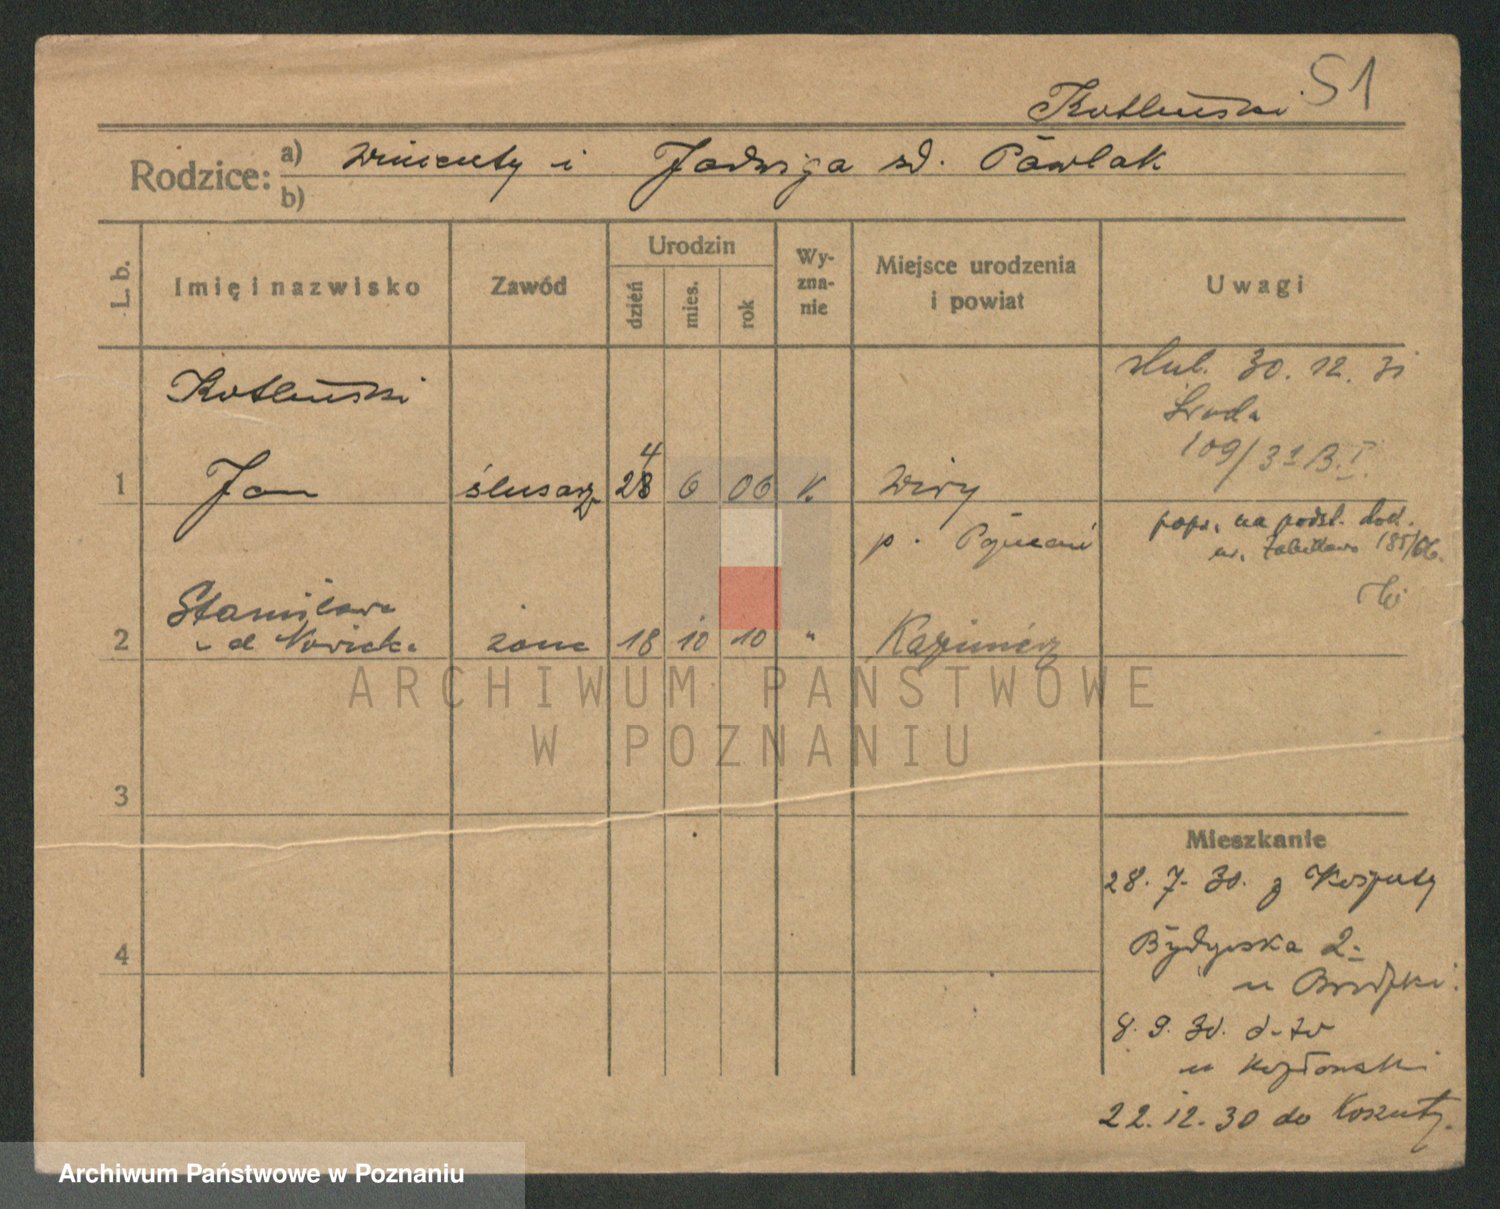 Kotliński S1
Rodzice: a) Wincenty i Jadwiga zd. Pawlak
b)
L. b.
Imię i nazwisko
Zawód
Urodzin
dzień
mies.
rok
Wy-
zna-
nie
Miejsce urodzenia
i powiat
Uwagi
Kotliński
ślub. 30. 12. 31
Środa
109/31 B.I.
4
1 Jan ślusarz 28 6 06 k. Wiry
p. Poznań
popr. na podst. dok.
185/66.
Stanisława
2 z d Nowicka żona 18 10 10 " Kazimierz
3
4
Mieszkanie
28. 7. 30. z Koszuty
Bydgoska 2
u
8. 9. 30. d-to
u Kozłowski
22. 12. 30 do Koszuty.
ARCHIWUM PAŃSTWOWE
W POZNANIU
Archiwum Państwowe w Poznaniu